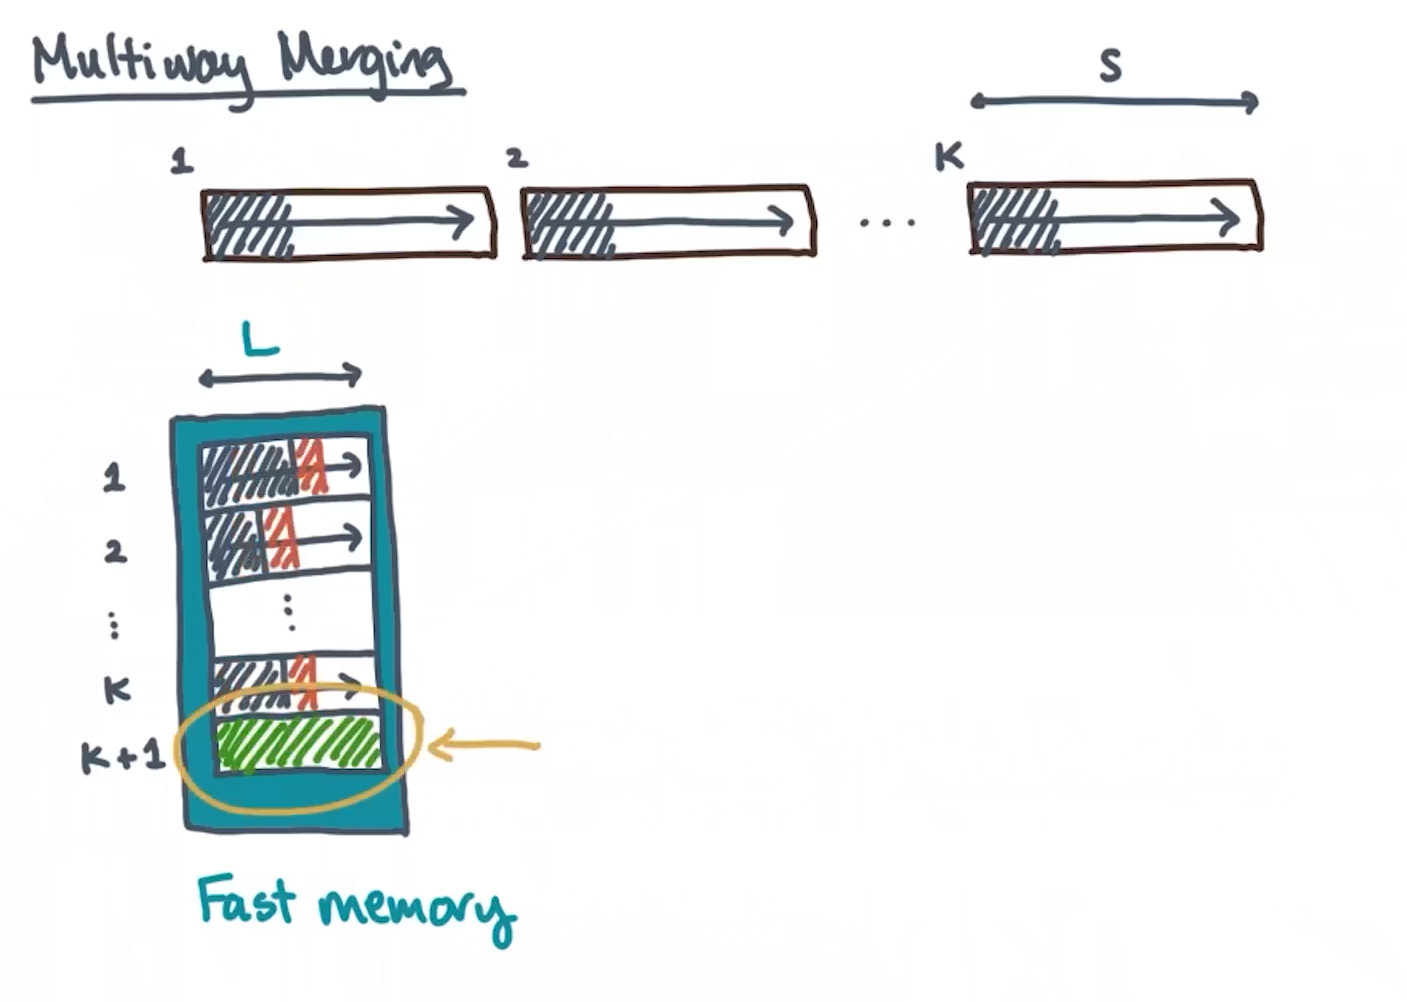 Multiway Merging
S
1 2 ... K
L
1
2
⋮
K
K+1
Fast memory